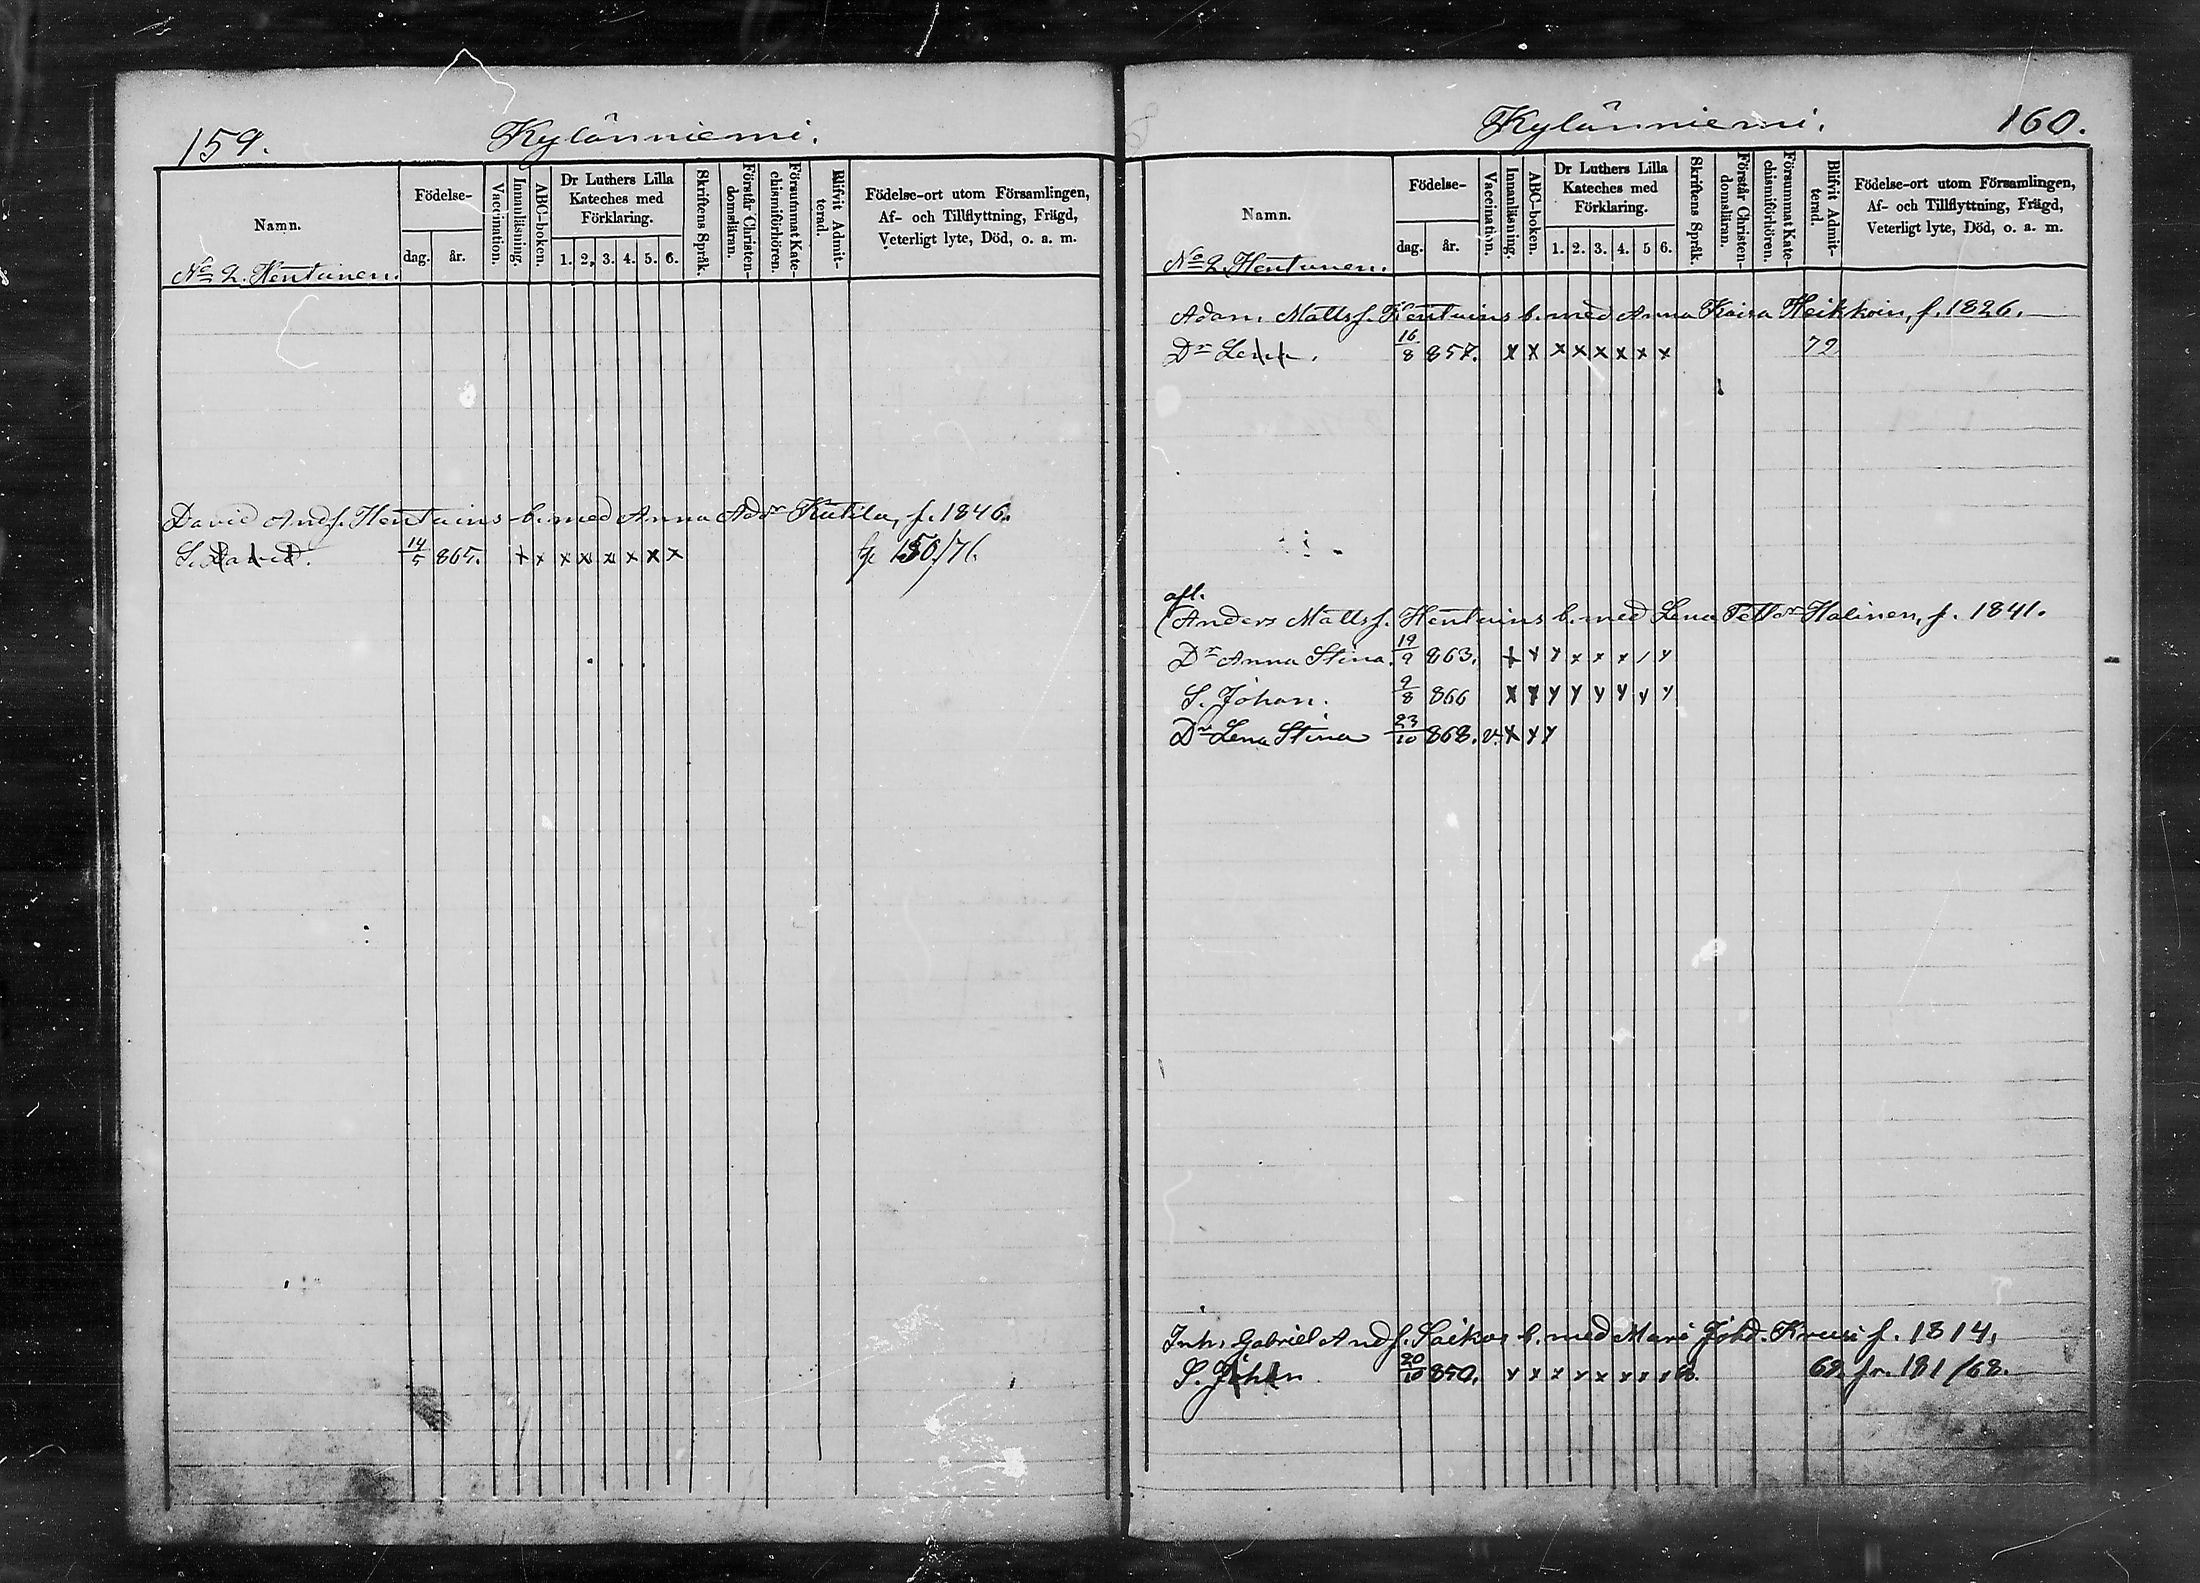 159.
Kylänniemi.
Namn.
Födelse-
dag. år.
Vaccination.
Innanläsning.
ABC-boken.
Dr Luthers Lilla Kateches med Förklaring.
1. 2. 3. 4. 5. 6.
Skriftens Språk.
Förstår Christendomsläran.
Försummat Katechismiförhören.
Blifvit Admitterad.
Födelse-ort utom Församlingen,
Af- och Tillflyttning, Frägd,
Veterligt lyte, Död, o. a. m.
No 2. Hentunen.
David Ands. Hentuins b. med Anna Adr Kutila, f. 1846.
S. David. 14/5 865. x x x x x x x x 150/76
Kylänniemi.
160.
Namn.
Födelse-
dag. år.
Vaccination.
Innanläsning.
ABC-boken.
Dr Luthers Lilla Kateches med Förklaring.
1. 2. 3. 4. 5 6.
Skriftens Språk.
Förstår Christendomsläran.
Försummat Katechismiförhören.
Blifvit Admitterad.
Födelse-ort utom Församlingen,
Af- och Tillflyttning, Frägd,
Veterligt lyte, Död, o. a. m.
No 2. Hentunen.
Adam Matts. Hentuins b. med Anna Kaisa Heikkoin, f. 1826.
Dr Lena. 16/8 857. x x x x x x x x 72
afl.
Anders Matts. Hentuins b. med Lena Pettr Halinen, f. 1841.
Dr Anna Stina. 19/9 863. x x x x x x / x
S. Johan. 9/8 866 x x x x x x x x
Dr Lena Stina 23/10 868. v. x x x
Inh. Gabriel Ands. Saikos b. med Maria Johd. Kruusi f. 1814.
S. Johan 20/10 850. x x x x x x x x 68. fr. 181/68.